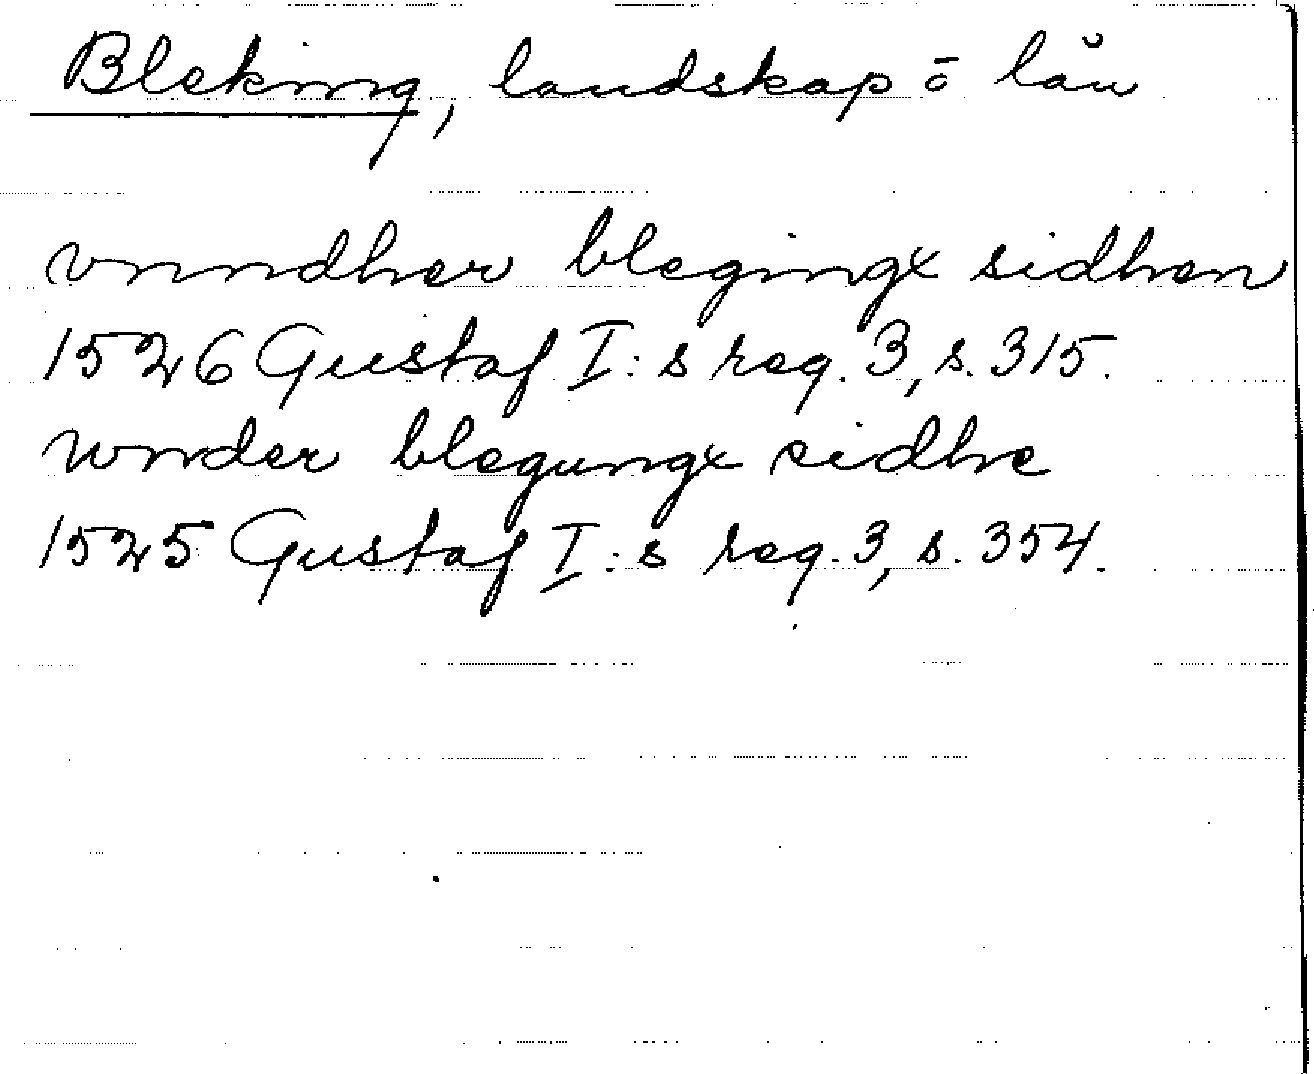 Bleking, landskap o län
vnndher blegingx sidhen
1526 Gustaf I:s reg. 3, s. 315.
wnder blegungx sidhe
1525 Gustaf I:s reg. 3, s. 354.